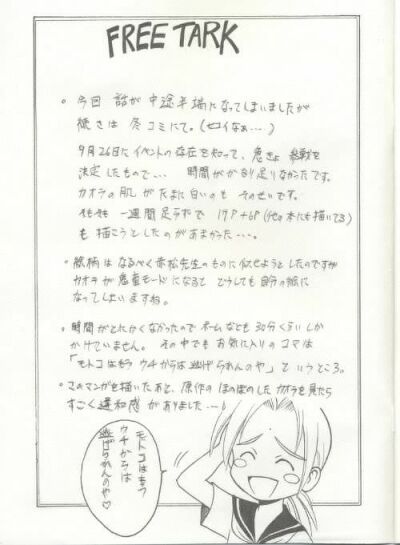 FREE TARK
。今回 話が 中途半端になってしまいましたが
続きは 冬コミにて。(セコイなぁ…)
9月26日にイベントの存在を知って、急きょ 参戦を
決定したもので… 時間がかなり足りなかったです。
カオラの 肌 がたまに白いのも そのせいです。
一週間足らずで 17P+6P (他の本にも描いてる)
も 描こうとしたのがあまかった…。
。絵柄は なるべく赤松先生のものに似せようとしたのですが
カオラが モードになると どうしても自分の絵に
なってしまいますね。
。時間がとにかくなかったので ネームなども 30分くらいしか
かけていません。その中でも お気に入りのコマは
「モトコはもう ウチからは 逃げられんのや」というところ。
。このマンガを描いたあと、原作の ほのぼのした カオラを見たら
すごく 違和感 がありました…
モトコはもう
ウチからは
逃げられんのや♡